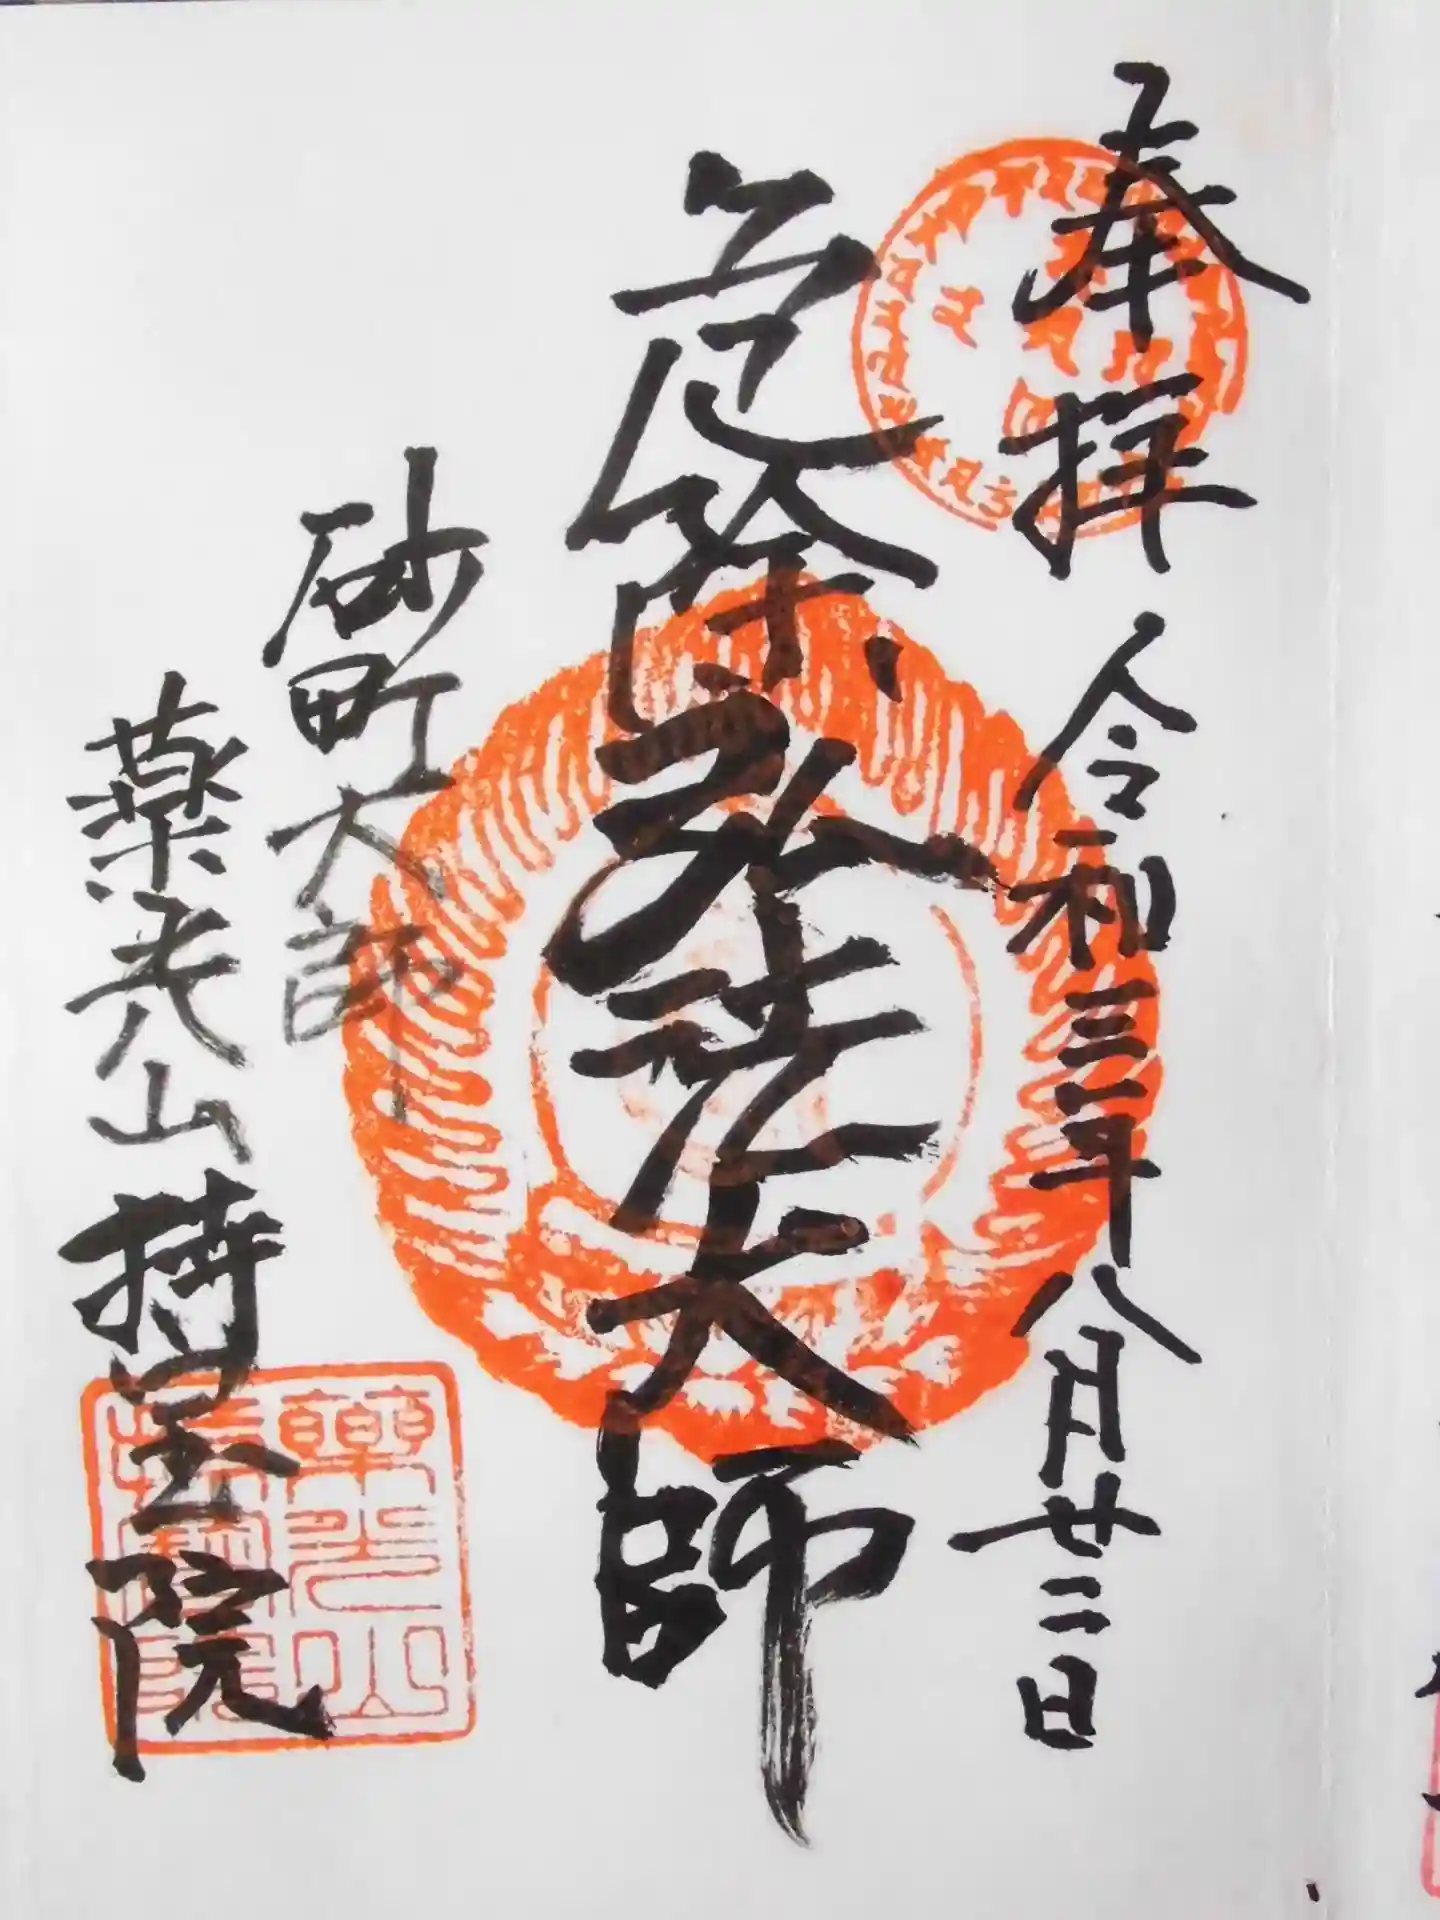 奉拝 令和三年八月廿二日
厄除弘法大師
砂町大師
薬光山持宝院
薬光山
持寳院